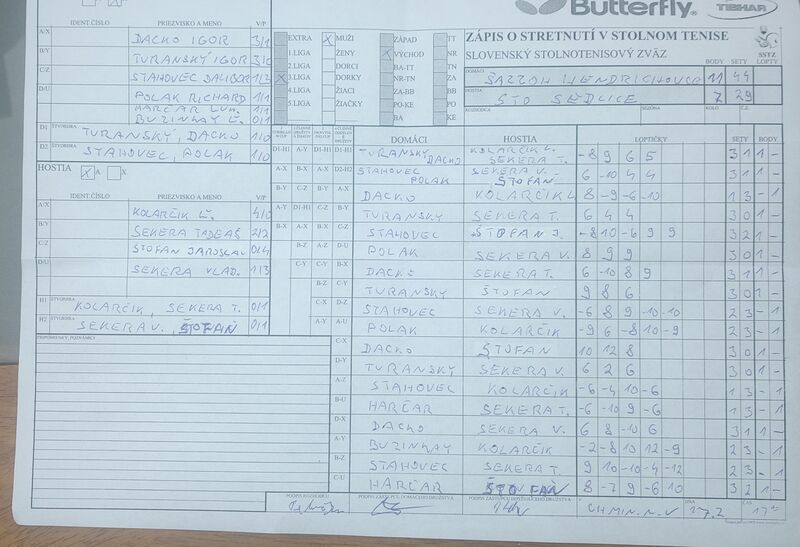 Butterfly
TIBHAR
IDENT.ČÍSLO PRIEZVISKO A MENO V/P
A/X DACKO IGOR 3/1
B/Y TURANSKÝ IGOR 3/0
C/Z STAHOVEC DALIBOR 1/3
D/U POLAK RICHARD 1/1
HARČAR 1/1
BUZINKAY Ľ. 0/1
D1 ŠTVORHRA TURANSKÝ, DACKO 1/0
D2 ŠTVORHRA STAHOVEC, POLAK 1/0
EXTRA X MUŽI ZÁPAD TT
1.LIGA ŽENY X VÝCHOD NR
2.LIGA DORCI BA-TT TN
X 3.LIGA DORKY NR-TN ZA
4.LIGA ŽIACI ZA-BB BB
5.LIGA ŽIAČKY PO-KE PO
BA KE
ZÁPIS O STRETNUTÍ V STOLNOM TENISE
SLOVENSKÝ STOLNOTENISOVÝ ZVÄZ
SSTZ
BODY SETY LOPTY
DOMÁCI 11 44
HOSTIA ŠTO SEDLICE 7 29
ROZHODCA SEZÓNA KOLO Č.Z.
HOSTIA X A X
IDENT.ČÍSLO PRIEZVISKO A MENO V/P
A/X KOLARČIK Ľ. 4/0
B/Y SEKERA TADEÁŠ 2/2
C/Z ŠTOFAN JAROSLAV 0/4
D/U SEKERA VLAD. 1/3
H1 ŠTVORHRA KOLARČIK, SEKERA T. 0/1
H2 ŠTVORHRA SEKERA V., ŠTOFAN 0/1
PRIPOMIENKY, POZNÁMKY
DOMÁCI HOSTIA LOPTIČKY SETY BODY
D1-H1 A-Y D1-H1 D1-H2 TURANSKÝ, DACKO KOLARČIK Ľ. SEKERA T. -8 9 6 5 3 1 1 -
A-X B-X A-X D2-H1 STAHOVEC POLAK SEKERA V. ŠTOFAN 6 -10 4 4 3 1 1 -
B-Y C-Z B-Y A-X DACKO KOLARČIK Ľ 8 -9 -6 -10 1 3 - 1
A-Y D1-H1 C-Z B-Y TURANSKÝ SEKERA T. 6 4 4 3 0 1 -
B-X A-X B-X C-Z STAHOVEC ŠTOFAN J. -8 10 -6 9 9 3 2 1 -
B-Z A-Z D-U POLAK SEKERA V. 8 9 9 3 0 1 -
C-Y C-Y B-X DACKO SEKERA T. 6 -10 8 9 3 1 1 -
B-Z C-Y TURANSKÝ ŠTOFAN 9 8 6 3 0 1 -
C-X D-Z STAHOVEC SEKERA V. -6 8 9 -10 -10 2 3 - 1
A-Y A-U POLAK KOLARČIK -9 6 -8 10 -9 2 3 - 1
C-X DACKO ŠTOFAN 10 12 8 3 0 1 -
D-Y TURANSKÝ SEKERA V. 6 2 6 3 0 1 -
A-Z STAHOVEC KOLARČIK -6 -4 10 -6 1 3 - 1
B-U HARČAR SEKERA T. -6 -10 9 -6 1 3 - 1
D-X DACKO SEKERA V. 6 8 -10 6 3 1 1 -
A-Y BUZINKAY KOLARČIK -2 -8 10 12 -9 2 3 - 1
B-Z STAHOVEC SEKERA T. 9 10 -10 -4 -12 2 3 - 1
C-U HARČAR ŠTOFAN 8 -7 9 -6 10 3 2 1 -
PODPIS ROZHODCU PODPIS ZÁSTUPCU DOMÁCEHO DRUŽSTVA PODPIS ZÁSTUPCU HOSŤUJÚCEHO DRUŽSTVA V CHMIN. N. V DŇA 17.2 ČAS 17